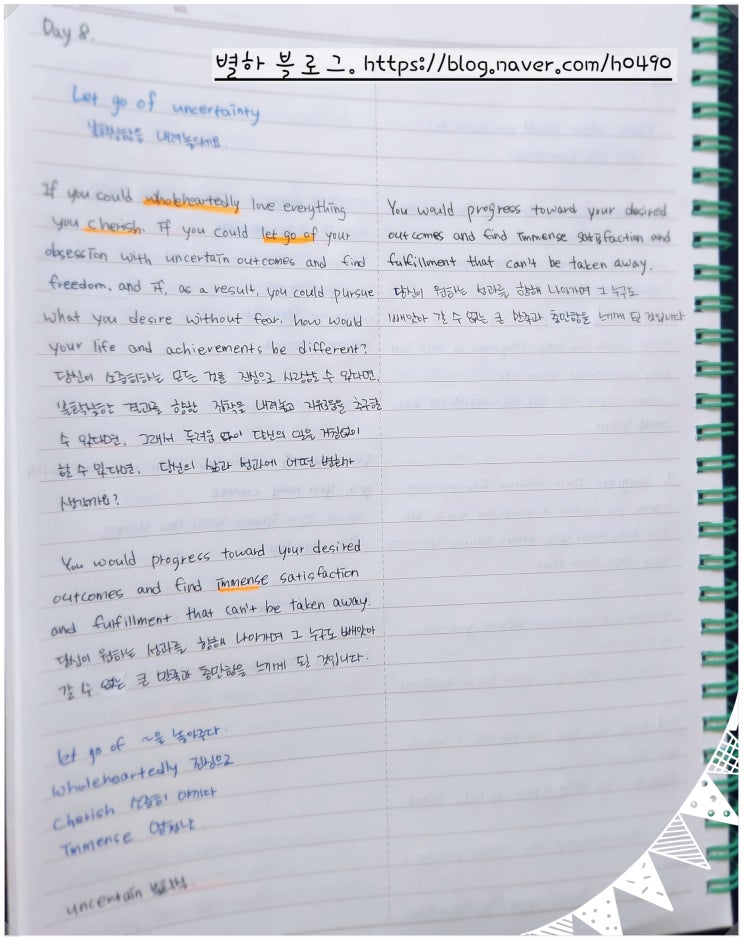 NO.
Day 8.
별하 블로그. https://blog.naver.com/h0490
Let go of uncertainty
불확실함을 내려놓으세요.
If you could wholeheartedly love everything
you cherish. If you could let go of your
obsession with uncertain outcomes and find
freedom. and if, as a result, you could pursue
what you desire without fear. how would
your life and achievements be different?
당신이 소중히하는 모든 것을 진심으로 사랑할 수 있다면,
불확실한 결과를 향한 집착을 내려놓고 자유로움을 추구할
수 있다면, 그래서 두려움 없이 당신의 일을 거침없이
할 수 있다면, 당신의 삶과 성과에 어떤 변화가
생길까요?
You would progress toward your desired
outcomes and find immense satisfaction
and fulfillment that can't be taken away.
당신이 원하는 성과를 향해 나아가며 그 누구도 빼앗아
갈 수 없는 큰 만족과 충만함을 느끼게 될 것입니다.
let go of ~을 놓아주다.
wholeheartedly 진심으로
cherish 소중히 아끼다
Immense 엄청난
uncertain 불확실한
You would progress toward your desired
outcomes and find immense satisfaction and
fulfillment that can't be taken away.
당신이 원하는 성과를 향해 나아가며 그 누구도
빼앗아 갈 수 없는 큰 만족과 충만함을 느끼게 될 것입니다